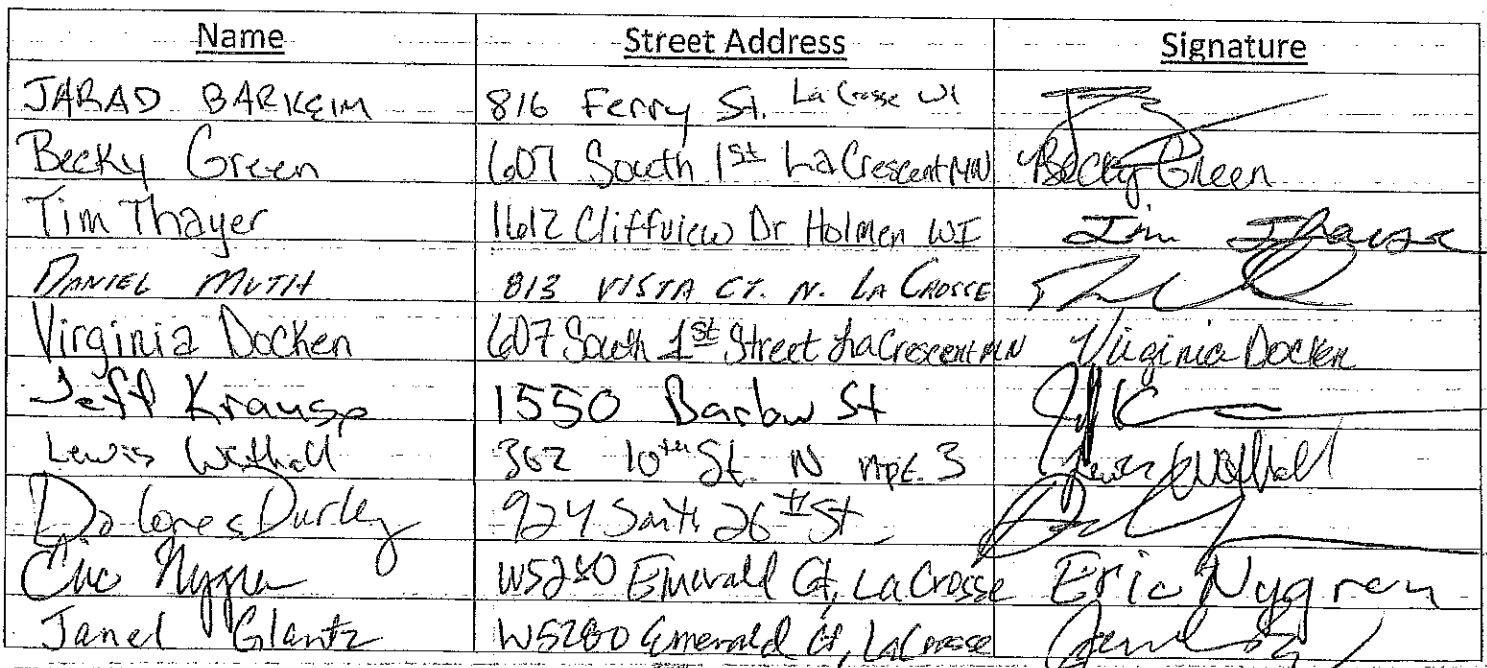 Name Street Address Signature
JARAD BARKEIM 816 Ferry St. La Crosse WI
Becky Green 607 South 1st La Crescent MN Becky Green
Tim Thayer 1612 Cliffview Dr Holmen WI Tim Thayer
DANIEL MUTH 813 VISTA CT. N. LA CROSSE
Virginia Docken 607 South 1st Street LaCrescent MN Virginia Docken
Jeff Krause 1550 Barlow St
Lewis 362 10th St. N Apt. 3 Lewis
Dolores Durley 924 South 26th St
Eric Nygren W5280 Emerald Ct, La Crosse Eric Nygren
Janel Glantz W5280 Emerald Ct, LaCrosse